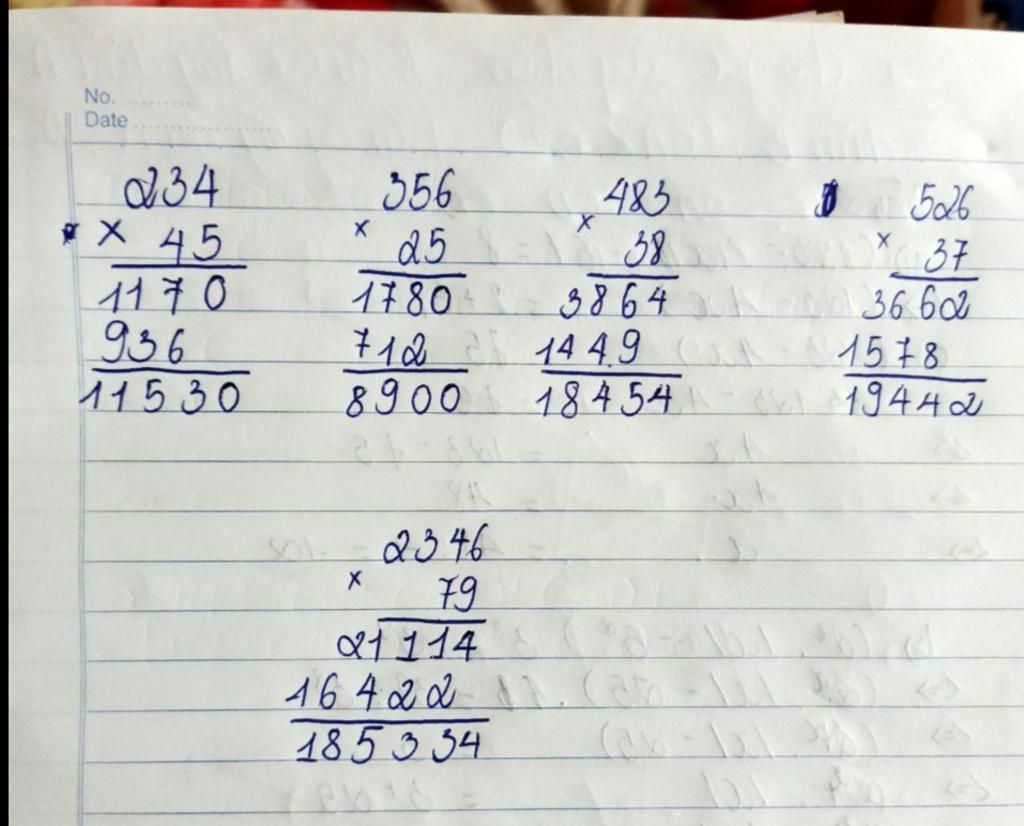 No. ............
Date ......................
234
× 45
1170
936
11530
356
× 25
1780
712
8900
483
× 38
3864
1449
18454
526
× 37
3662
1578
19442
2346
× 79
21114
16422
185334